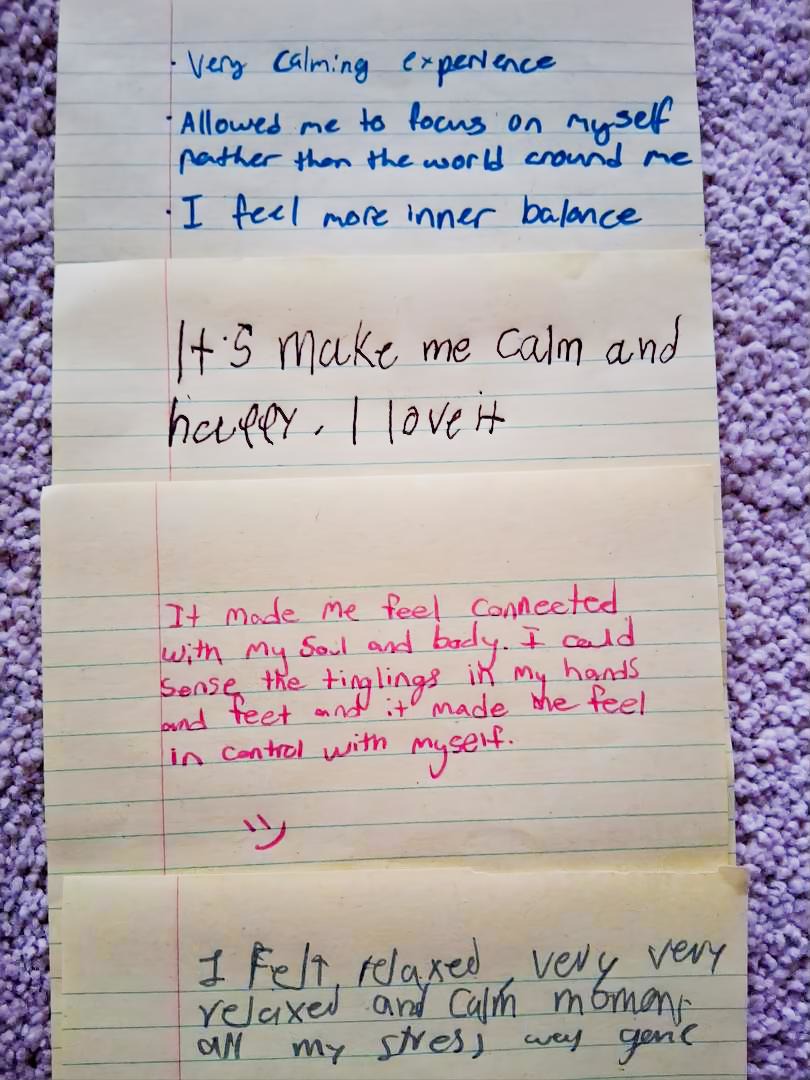 · Very Calming experience
· Allowed me to focus on myself
rather than the world around me
· I feel more inner balance
It's make me calm and
happy. I love it
It made me feel connected
with my soul and body. I could
sense the tinglings in my hands
and feet and it made me feel
in control with myself.
I Felt relaxed, very very
relaxed and calm moment
all my stress was gone